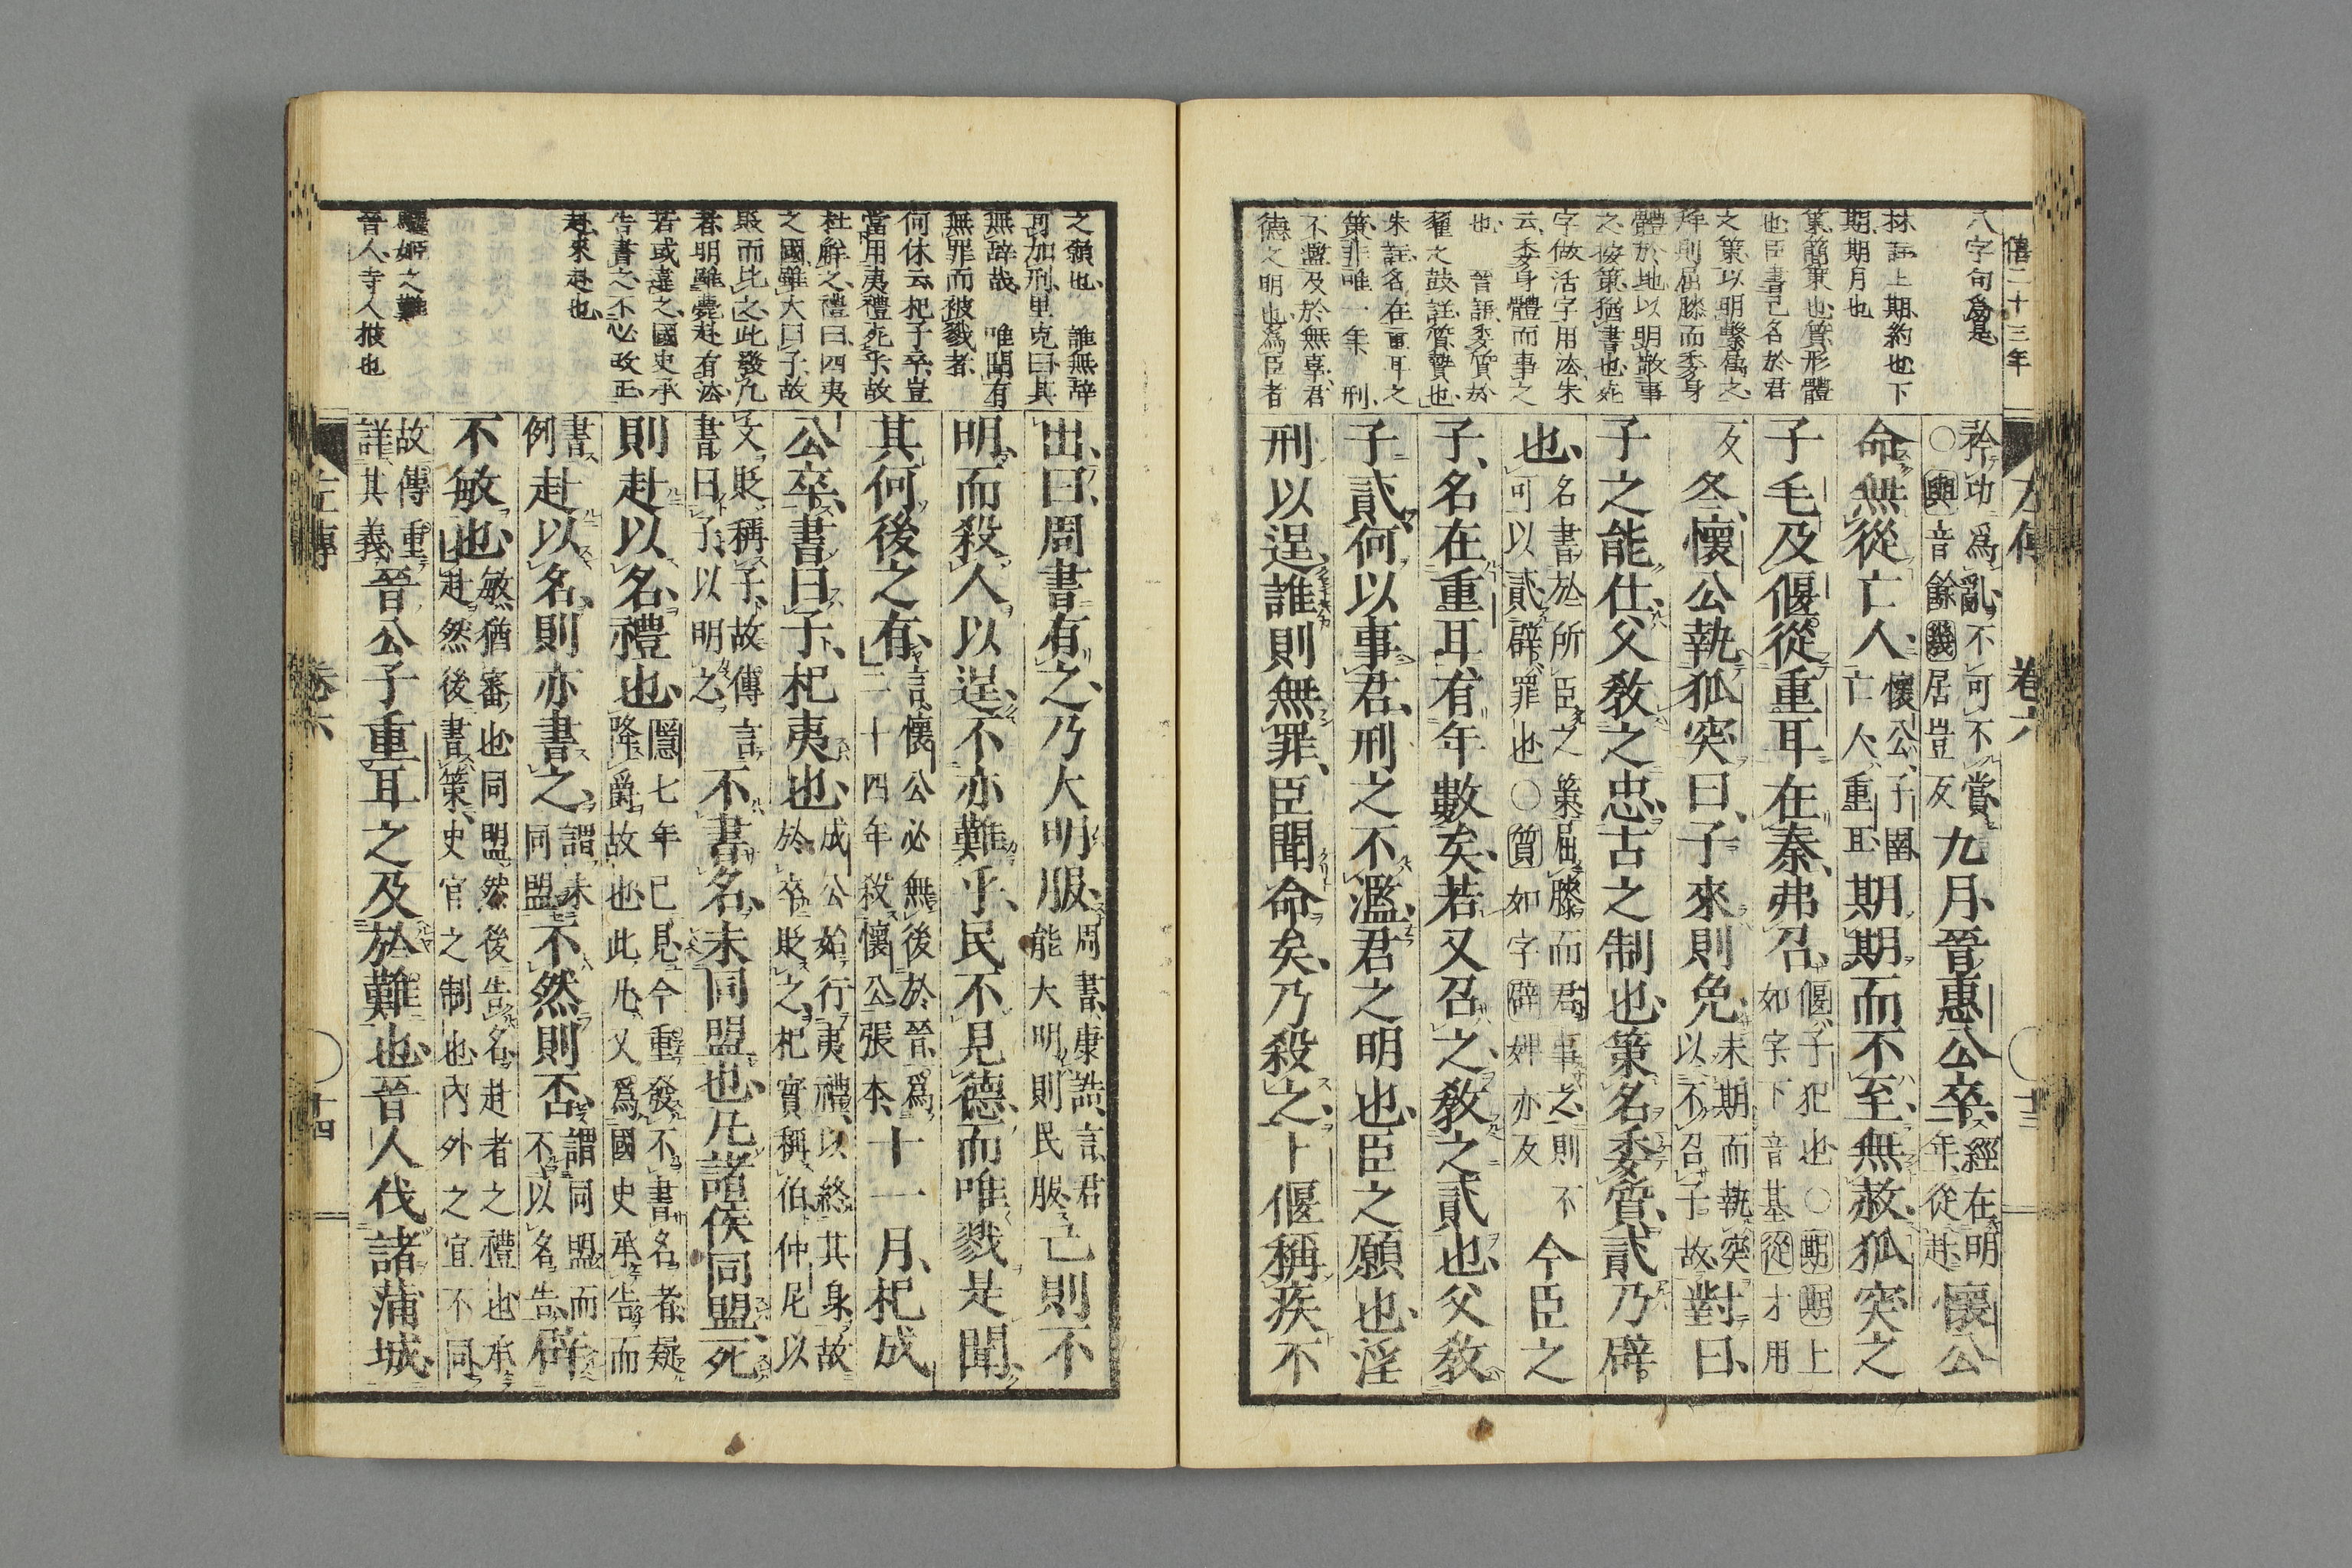 僖二十三年
八字句爲是
林註上期約也下
期期月也
策簡策也質形體
也臣書己名於君
之策以明繫屬之
拜則屈膝而委身
體於地以明敬事
之按策猶書也死
字做活字用法朱
云委身體而事之
也 晉語委質於
翟之鼓註質贄也
朱註名在重耳之
策非唯一年 刑
不濫及於無辜君
德之明也爲臣者
矜功爲亂不可不賞
○與音餘幾居豈反
九月晉惠公卒
經在明
年從赴
懷公
命無從亡人
懷公子圉
亡人重耳
期期而不至無赦狐突之
子毛及偃從重耳在秦弗召
偃子犯也○期期上
如字下音基從才用
反
冬懷公執狐突曰子來則免
未期而執突
以不召子故
對曰
子之能仕父教之忠古之制也策名委質貳乃辟
也
名書於所臣之策屈膝而君事之則不
可以貳辟罪也○質如字辟婢亦反
今臣之
子名在重耳有年數矣若又召之教之貳也父教
子貳何以事君刑之不濫君之明也臣之願也淫
刑以逞誰則無罪臣聞命矣乃殺之卜偃稱疾不
左傳 卷六 十三
之願也 誰無辭
可加刑里克曰其
無辭哉 唯聞有
無罪而被戮者
何休云杞子卒豈
當用夷禮死乎故
杜解之禮曰四夷
之國雖大曰子故
貶而比之此發凡
者明雖薨赴有法
若或違之國史承
告書之不必改正
赴來赴也
驪姬之難
晉人寺人披也
出曰周書有之乃大明服
周書康誥言君
能大明則民服
己則不
明而殺人以逞不亦難乎民不見德而唯戮是聞
其何後之有
言懷公必無後於晉爲
二十四年殺懷公張本
十一月杞成
公卒書曰子杞夷也
成公始行夷禮以終其身故
於卒貶之杞實稱伯仲尼以
文貶稱子故傳言
書曰子以明之
不書名未同盟也凡諸侯同盟死
則赴以名禮也
隱七年已見今重發不書名者疑
降爵故也此凡又爲國史承告而
書
例
赴以名則亦書之
謂未
同盟
不然則否
謂同盟而
不以名告
辟
不敏也
敏猶審也同盟然後告名赴者之禮也承
赴然後書策史官之制也內外之宜不同
故傳重
詳其義
晉公子重耳之及於難也晉人伐諸蒲城
左傳 卷六 十四